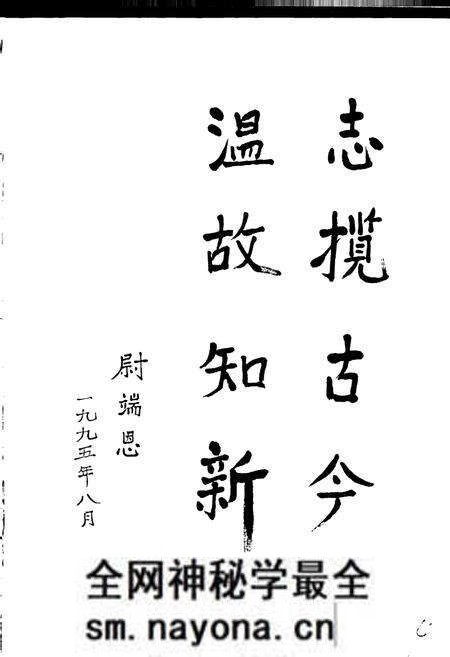 志揽古今
温故知新
尉端恩
一九九五年八月
全网神秘学最全
sm.nayona.cn